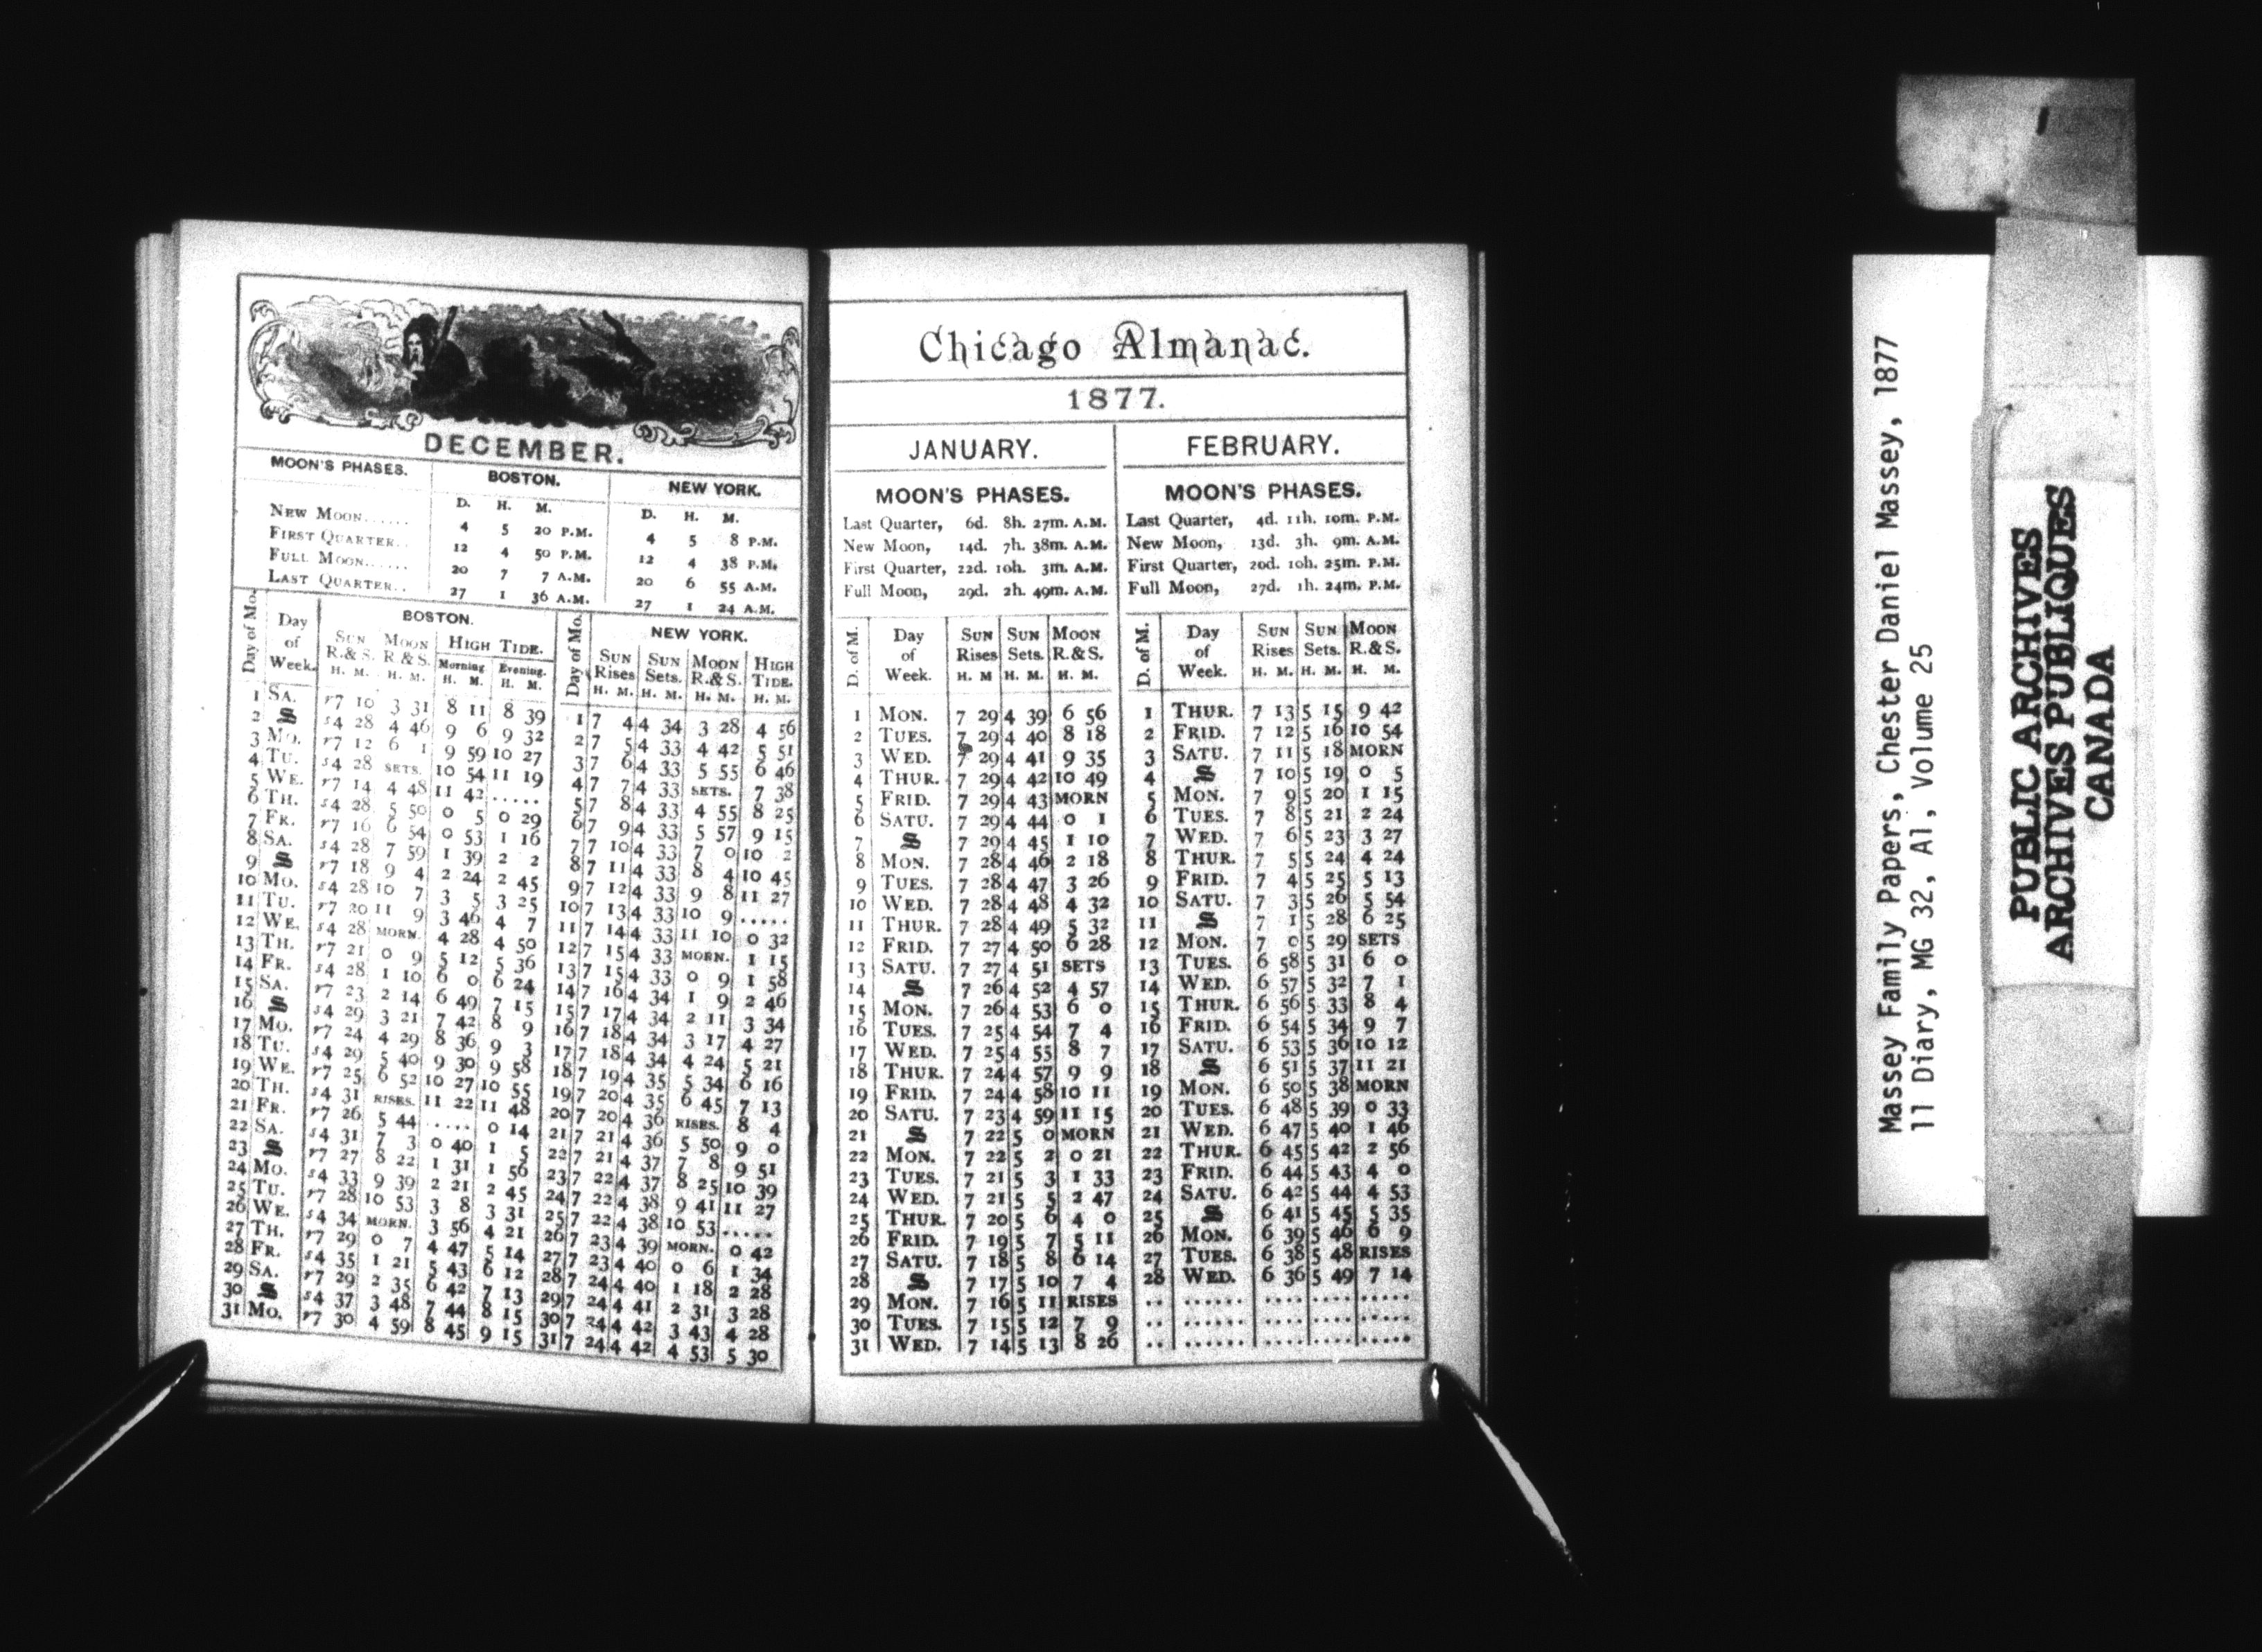 DECEMBER.
MOON'S PHASES. BOSTON. NEW YORK.
D. H. M. D. H. M.
NEW MOON...... 4 5 20 P.M. 4 5 8 P.M.
FIRST QUARTER.. 12 4 50 P.M. 12 4 38 P.M.
FULL MOON...... 20 7 7 A.M. 20 6 55 A.M.
LAST QUARTER.. 27 1 36 A.M. 27 1 24 A.M.
Day of Mo. Day of Week. BOSTON. Day of Mo. NEW YORK.
SUN R.&S. MOON R&S. HIGH TIDE. SUN Rises SUN Sets. MOON R.&S. HIGH TIDE.
Morning Evening.
H. M. H. M. H. M. H. M. H. M. H. M. H. M. H. M.
1 SA. r7 10 3 31 8 11 8 39 1 7 4 4 34 3 28 4 56
2 S s4 28 4 46 9 6 9 32 2 7 5 4 33 4 42 5 51
3 MO. r7 12 6 1 9 59 10 27 3 7 6 4 33 5 55 6 46
4 TU. s4 28 SETS. 10 54 11 19 4 7 7 4 33 SETS. 7 38
5 WE. r7 14 4 48 11 42 ..... 5 7 8 4 33 4 55 8 25
6 TH. s4 28 5 50 0 5 0 29 6 7 9 4 33 5 57 9 15
7 FR. r7 16 6 54 0 53 1 16 7 7 10 4 33 7 0 10 2
8 SA. s4 28 7 59 1 39 2 2 8 7 11 4 33 8 4 10 45
9 S r7 18 9 4 2 24 2 45 9 7 12 4 33 9 8 11 27
10 MO. s4 28 10 7 3 5 3 25 10 7 13 4 33 10 9 .....
11 TU. r7 20 11 9 3 46 4 7 11 7 14 4 33 11 10 0 32
12 WE. s4 28 MORN. 4 28 4 50 12 7 15 4 33 MORN. 1 15
13 TH. r7 21 0 9 5 12 5 36 13 7 15 4 33 0 9 1 58
14 FR. s4 28 1 10 6 0 6 24 14 7 16 4 34 1 9 2 46
15 SA. r7 23 2 14 6 49 7 15 15 7 17 4 34 2 11 3 34
16 S s4 29 3 21 7 42 8 9 16 7 18 4 34 3 17 4 27
17 MO. r7 24 4 29 8 36 9 3 17 7 18 4 34 4 24 5 21
18 TU. s4 29 5 40 9 30 9 58 18 7 19 4 35 5 34 6 16
19 WE. r7 25 6 52 10 27 10 55 19 7 20 4 35 6 45 7 13
20 TH. s4 31 RISES. 11 22 11 48 20 7 20 4 36 RISES. 8 4
21 FR. r7 26 5 44 ..... 0 14 21 7 21 4 36 5 50 9 0
22 SA. s4 31 7 3 0 40 1 5 22 7 21 4 37 7 8 9 51
23 S r7 27 8 22 1 31 1 56 23 7 22 4 37 8 25 10 39
24 MO. s4 33 9 39 2 21 2 45 24 7 22 4 38 9 41 11 27
25 TU. r7 28 10 53 3 8 3 31 25 7 22 4 38 10 53 .....
26 WE. s4 34 MORN. 3 56 4 21 26 7 23 4 39 MORN. 0 42
27 TH. r7 29 0 7 4 47 5 14 27 7 23 4 40 0 6 1 34
28 FR. s4 35 1 21 5 43 6 12 28 7 24 4 40 1 18 2 28
29 SA. r7 29 2 35 6 42 7 13 29 7 24 4 41 2 31 3 28
30 S s4 37 3 48 7 44 8 15 30 7 24 4 42 3 43 4 28
31 MO. r7 30 4 59 8 45 9 15 31 7 24 4 42 4 53 5 30
Chicago Almanac.
1877.
JANUARY. FEBRUARY.
MOON'S PHASES. MOON'S PHASES.
Last Quarter, 6d. 8h. 27m. A.M. Last Quarter, 4d. 11h. 10m. P.M.
New Moon, 14d. 7h. 38m. A.M. New Moon, 13d. 3h. 9m. A.M.
First Quarter, 22d. 10h. 3m. A.M. First Quarter, 20d. 10h. 25m. P.M.
Full Moon, 29d. 2h. 49m. A.M. Full Moon, 27d. 1h. 24m. P.M.
D. of M. Day of Week. SUN Rises SUN Sets. MOON R.&S. D. of M. Day of Week. SUN Rises SUN Sets. MOON R.&S.
H. M H. M. H. M. H. M. H. M. H. M.
1 MON. 7 29 4 39 6 56 1 THUR. 7 13 5 15 9 42
2 TUES. 7 29 4 40 8 18 2 FRID. 7 12 5 16 10 54
3 WED. 7 29 4 41 9 35 3 SATU. 7 11 5 18 MORN
4 THUR. 7 29 4 42 10 49 4 S 7 10 5 19 0 5
5 FRID. 7 29 4 43 MORN 5 MON. 7 9 5 20 1 15
6 SATU. 7 29 4 44 0 1 6 TUES. 7 8 5 21 2 24
7 S 7 29 4 45 1 10 7 WED. 7 6 5 23 3 27
8 MON. 7 28 4 46 2 18 8 THUR. 7 5 5 24 4 24
9 TUES. 7 28 4 47 3 26 9 FRID. 7 4 5 25 5 13
10 WED. 7 28 4 48 4 32 10 SATU. 7 3 5 26 5 54
11 THUR. 7 28 4 49 5 32 11 S 7 1 5 28 6 25
12 FRID. 7 27 4 50 6 28 12 MON. 7 0 5 29 SETS
13 SATU. 7 27 4 51 SETS 13 TUES. 6 58 5 31 6 0
14 S 7 26 4 52 4 57 14 WED. 6 57 5 32 7 1
15 MON. 7 26 4 53 6 0 15 THUR. 6 56 5 33 8 4
16 TUES. 7 25 4 54 7 4 16 FRID. 6 54 5 34 9 7
17 WED. 7 25 4 55 8 7 17 SATU. 6 53 5 36 10 12
18 THUR. 7 24 4 57 9 9 18 S 6 51 5 37 11 21
19 FRID. 7 24 4 58 10 11 19 MON. 6 50 5 38 MORN
20 SATU. 7 23 4 59 11 15 20 TUES. 6 48 5 39 0 33
21 S 7 22 5 0 MORN 21 WED. 6 47 5 40 1 46
22 MON. 7 22 5 2 0 21 22 THUR. 6 45 5 42 2 56
23 TUES. 7 21 5 3 1 33 23 FRID. 6 44 5 43 4 0
24 WED. 7 21 5 5 2 47 24 SATU. 6 42 5 44 4 53
25 THUR. 7 20 5 6 4 0 25 S 6 41 5 45 5 35
26 FRID. 7 19 5 7 5 11 26 MON. 6 39 5 46 6 9
27 SATU. 7 18 5 8 6 14 27 TUES. 6 38 5 48 RISES
28 S 7 17 5 10 7 4 28 WED. 6 36 5 49 7 14
29 MON. 7 16 5 11 RISES .. ...... .... .... .....
30 TUES. 7 15 5 12 7 9 .. ...... .... .... .....
31 WED. 7 14 5 13 8 26 .. ...... .... .... .....
Massey Family Papers, Chester Daniel Massey, 1877
11 Diary, MG 32, A1, Volume 25
PUBLIC ARCHIVES
ARCHIVES PUBLIQUES
CANADA